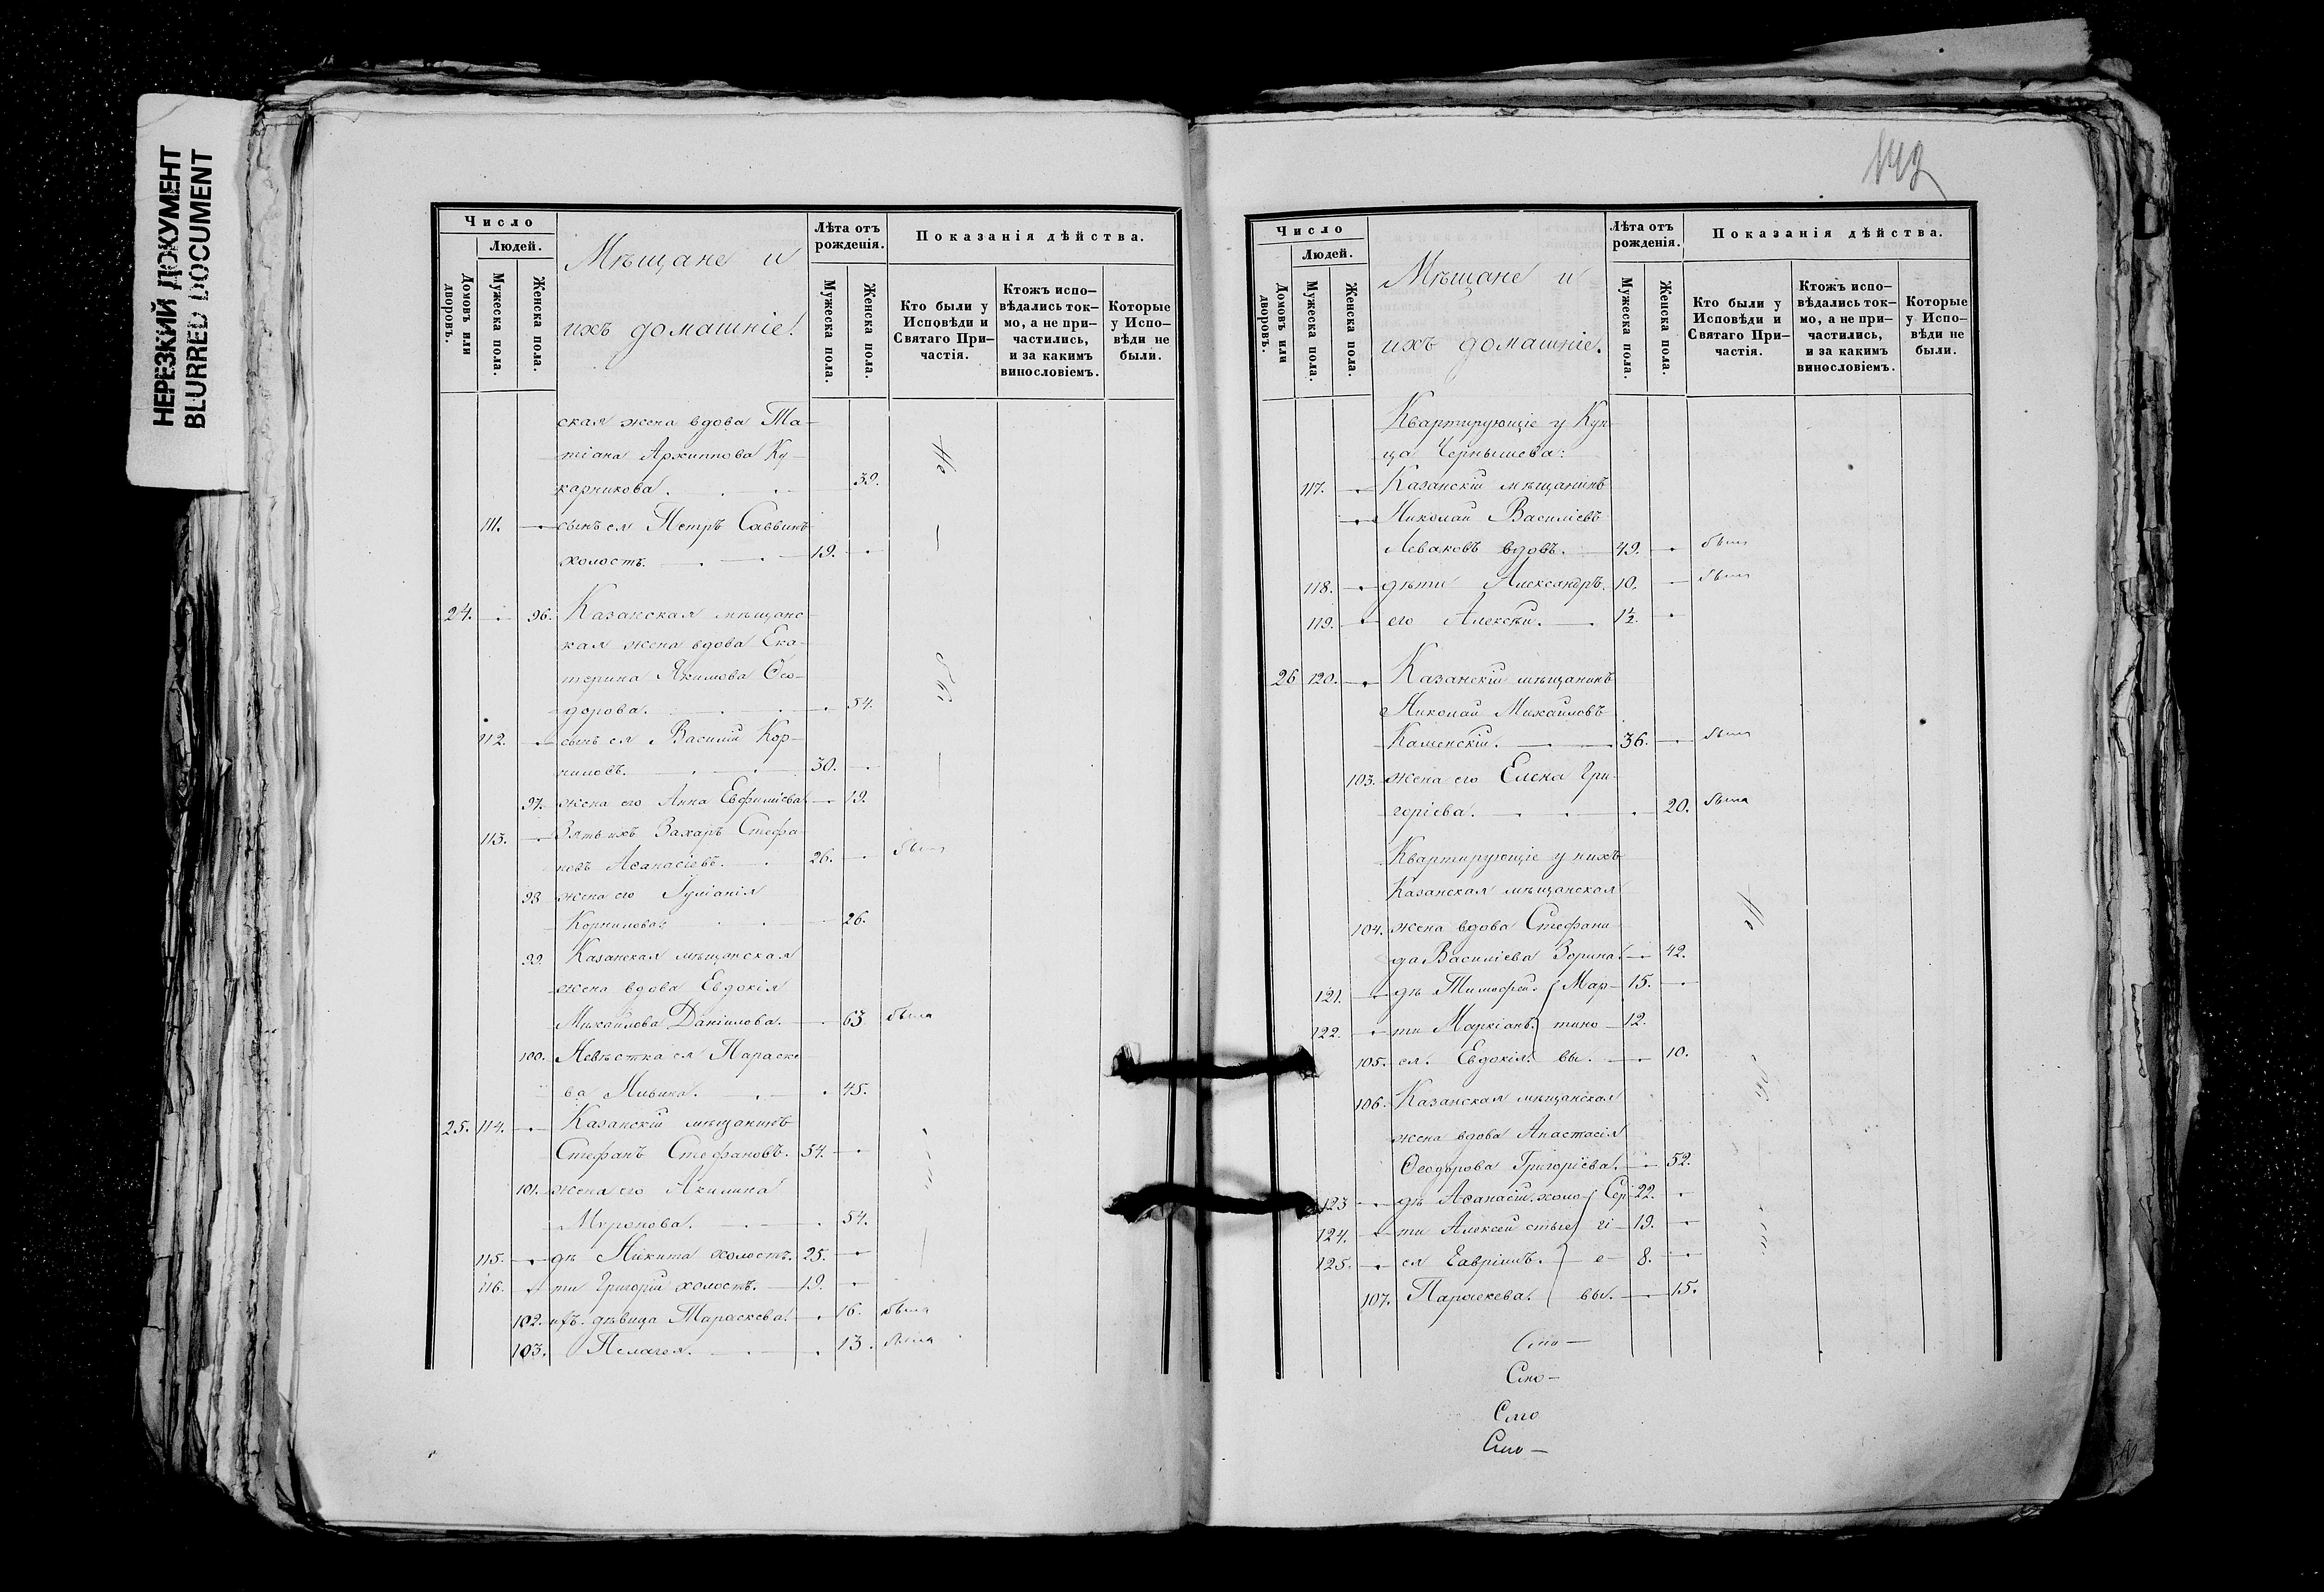 НЕРЕЗКИЙ ДОКУМЕНТ
BLURRED DOCUMENT
Число
Людей.
Домовъ или дворовъ.
Мужеска пола.
Женска пола.
Мѣщане и
ихъ домашніе.
Лѣта отъ рожденія.
Мужеска пола.
Женска пола.
Показанія дѣйства.
Кто были у Исповѣди и Святаго При-частія.
Ктожъ испо-вѣдались ток-мо, а не при-частились, и за какимъ винословіемъ.
Которые у Испо-вѣди не были.
ская жена вдова Та-
тіана Архиппова Ку-
карникова. 39.
111. сынъ ея Петръ Саввинъ
холостъ. 19.
24. 96. Казанская мѣщанс-
кая жена вдова Ека-
терина Якимова Ѳео-
дорова. 54.
112. сынъ ея Василій Кор-
ниловъ. 30.
97. жена его Анна Евфиміева 19.
113. Зять ихъ Захаръ Стефа-
новъ Аѳанасіевъ. 26. былъ
98. жена его Іуліанія
Корнилова 26.
99. Казанская мѣщанская
жена вдова Евдокія
Михайлова Даніилова. 63 была
100. Невѣстка ея Параске
ва Ильина. 45.
25. 114. Казанскій мѣщанинъ
Стефанъ Стефановъ. 54.
101. жена его Акилина
Миронова. 54.
115. дѣ Никита холостъ. 25.
116. ти Григорій холостъ. 19.
102. ихъ. дѣвица Параскева. 16. была
103. Пелагея. 13. была
142
Число
Людей.
Домовъ или дворовъ.
Мужеска пола.
Женска пола.
Мѣщане и
ихъ домашніе.
Лѣта отъ рожденія.
Мужеска пола.
Женска пола.
Показанія дѣйства.
Кто были у Исповѣди и Святаго При-частія.
Ктожъ испо-вѣдались ток-мо, а не при-частились, и за какимъ винословіемъ.
Которые у Испо-вѣди не были.
Квартирующіе у Куп
ца Чернышева:
117. Казанскій мѣщанинъ
Николай Василіевъ
Леваковъ вдовъ. 49. былъ
118. дѣти Александръ. 10. былъ
119. его Алексѣй. 1½
26 120. Казанскій мѣщанинъ
Николай Михайловъ
Каменскій. 36. былъ
103. жена его Елена Гри-
горіева. 20. была
Квартирующіе у нихъ
Казанская мѣщанская
104. жена вдова Стефани-
да Василіева Зорина. 42.
121. дѣ Тимоѳей. Мар- 15.
122. ти Маркіанъ. тино 12.
105. ея. Евдокія. вы. 10.
106. Казанская мѣщанская
жена вдова Анастасія
Ѳеодорова Григоріева. 52.
123 дѣ Аѳанасій. холо- Сер 22.
124. ти Алексей стые гі- 19.
125. ея Гавріилъ. е- 8.
107. Параскева. вы. 15.